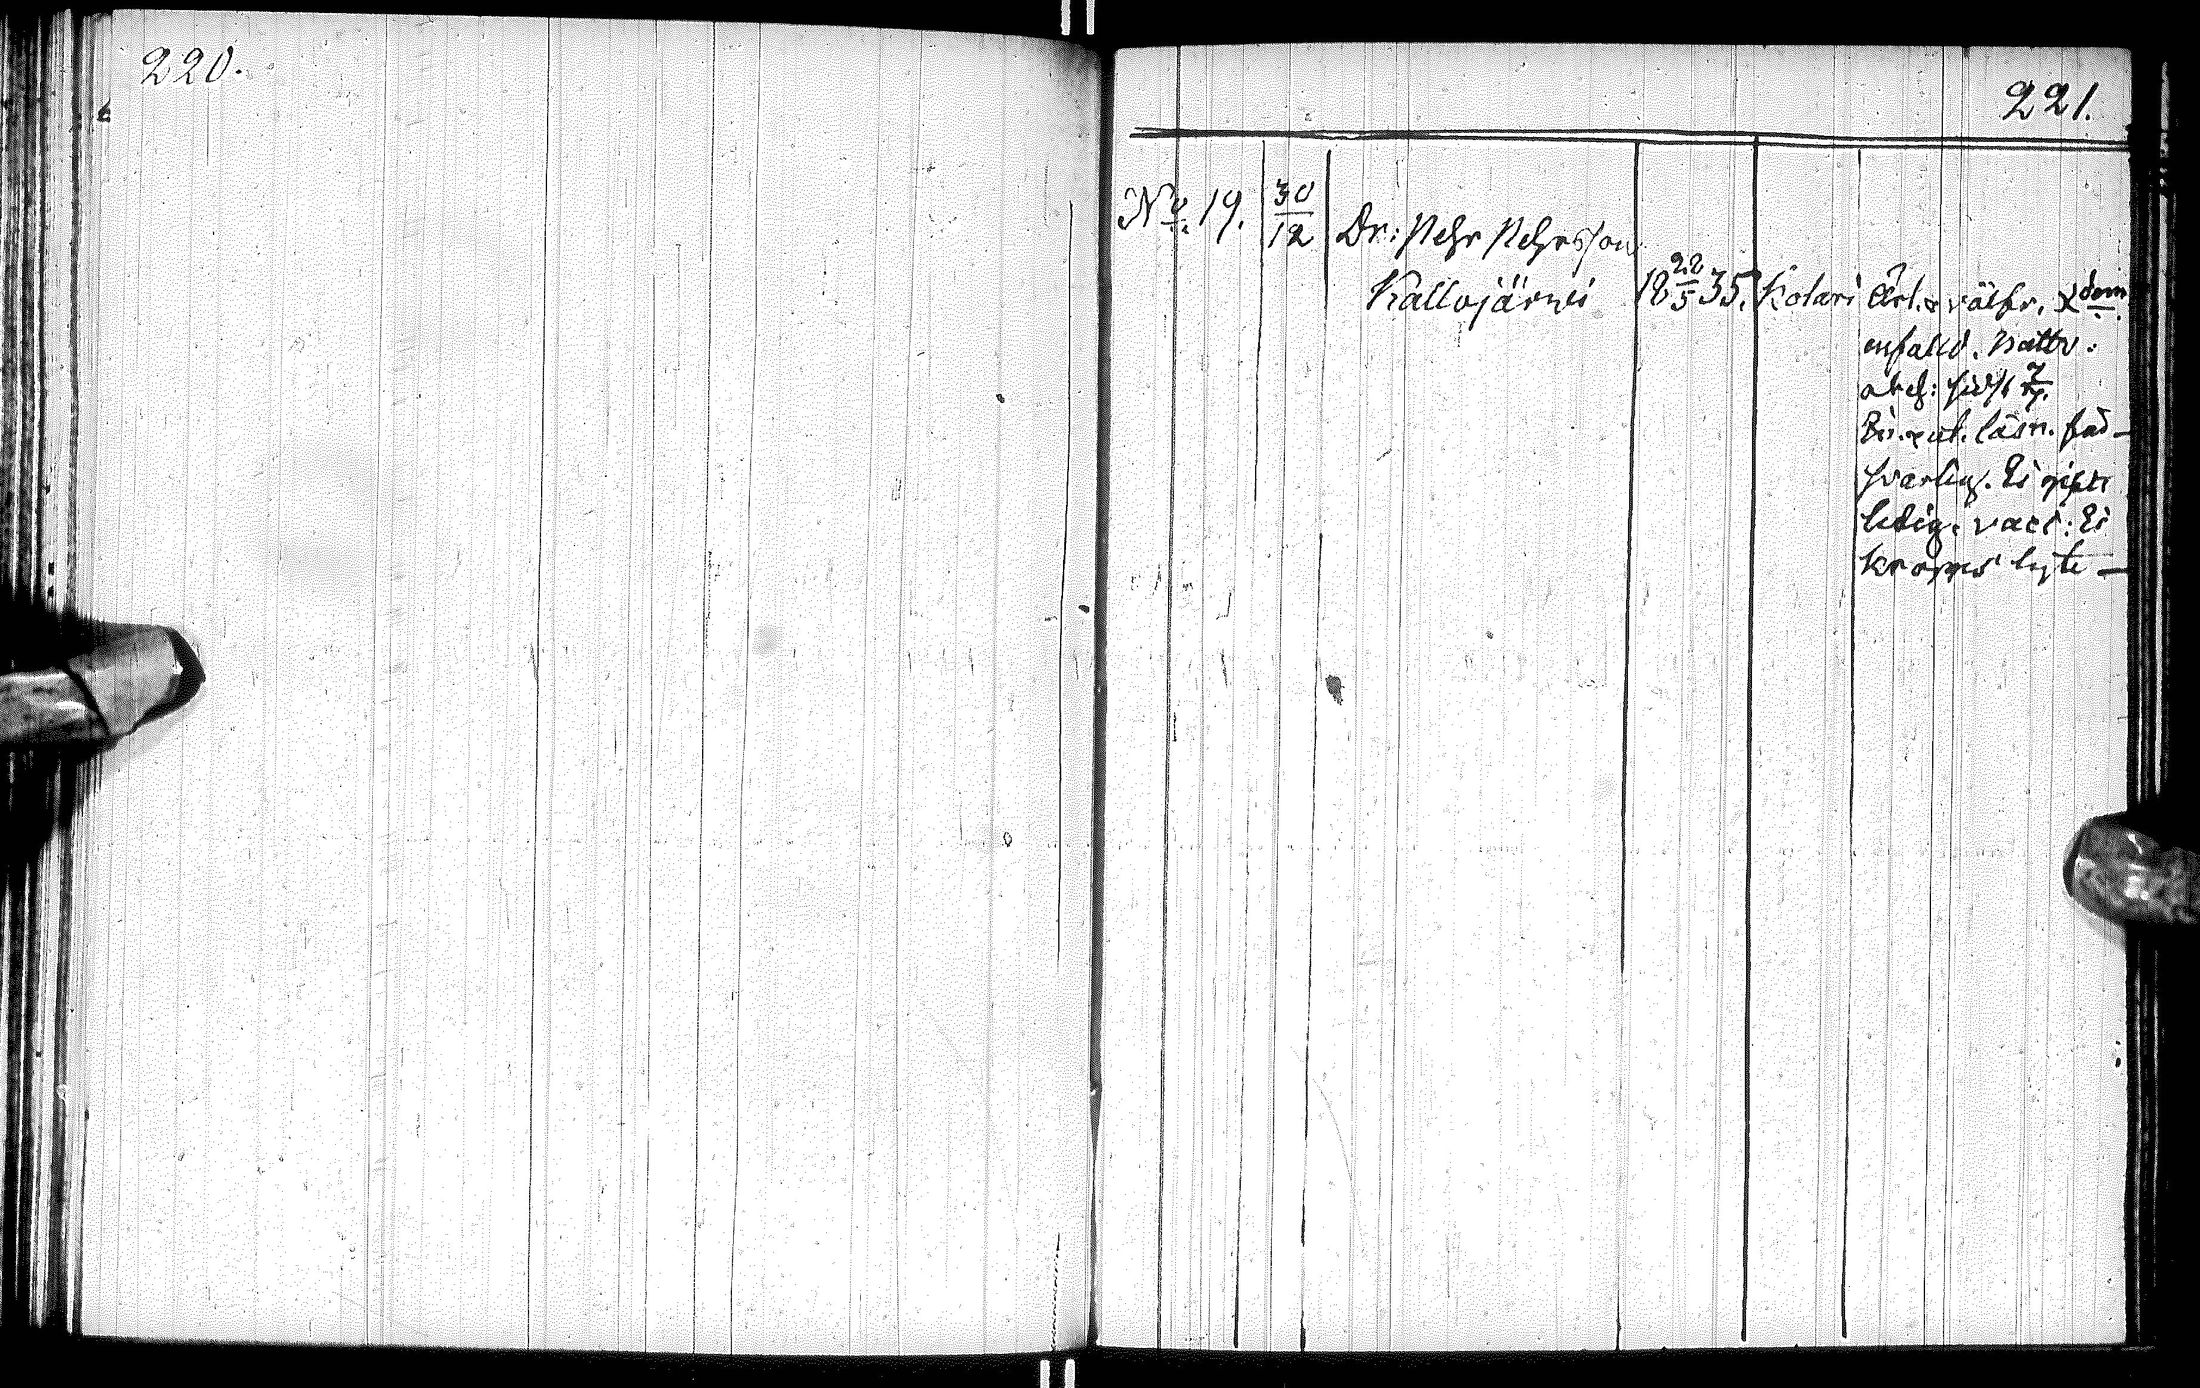 220.
221.
No. 19. 30/12 Dr: Pehr Pehrsson
Kallojärvi 18 22/5 35. Kotari Ärl. & välfr. Xdom
enfald. Nattv:
abeg: sidst 7/7.
In. & ut. läsn. för-
svarlig. Ej gift
ledig. vacc: Ej
kropps lyte —